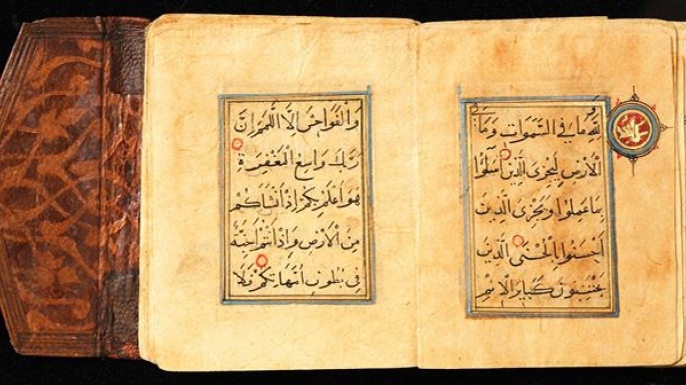 وَلِلّٰهِ مَا فِي السَّمٰوَاتِ وَمَا
الْاَرْضِ لِيَجْزِىَ الَّذِينَ اَسَاؤُا
بِمَا عَمِلُوا وَيَجْزِىَ الَّذِينَ
اَحْسَنُوا بِالْحُسْنَى الَّذِينَ
يَجْتَنِبُونَ كَبَايِرَ الْاِثْمِ
وَالْفَوَاحِشَ اِلَّا اللَّمَمَ اِنَّ
رَبَّكَ وَاسِعُ الْمَغْفِرَةِ
هُوَ اَعْلَمُ بِكُمْ اِذْ اَنْشَاَكُمْ
مِنَ الْاَرْضِ وَاِذْ اَنْتُمْ اَجِنَّةٌ
فِي بُطُونِ اُمَّهَاتِكُمْ فَلَا